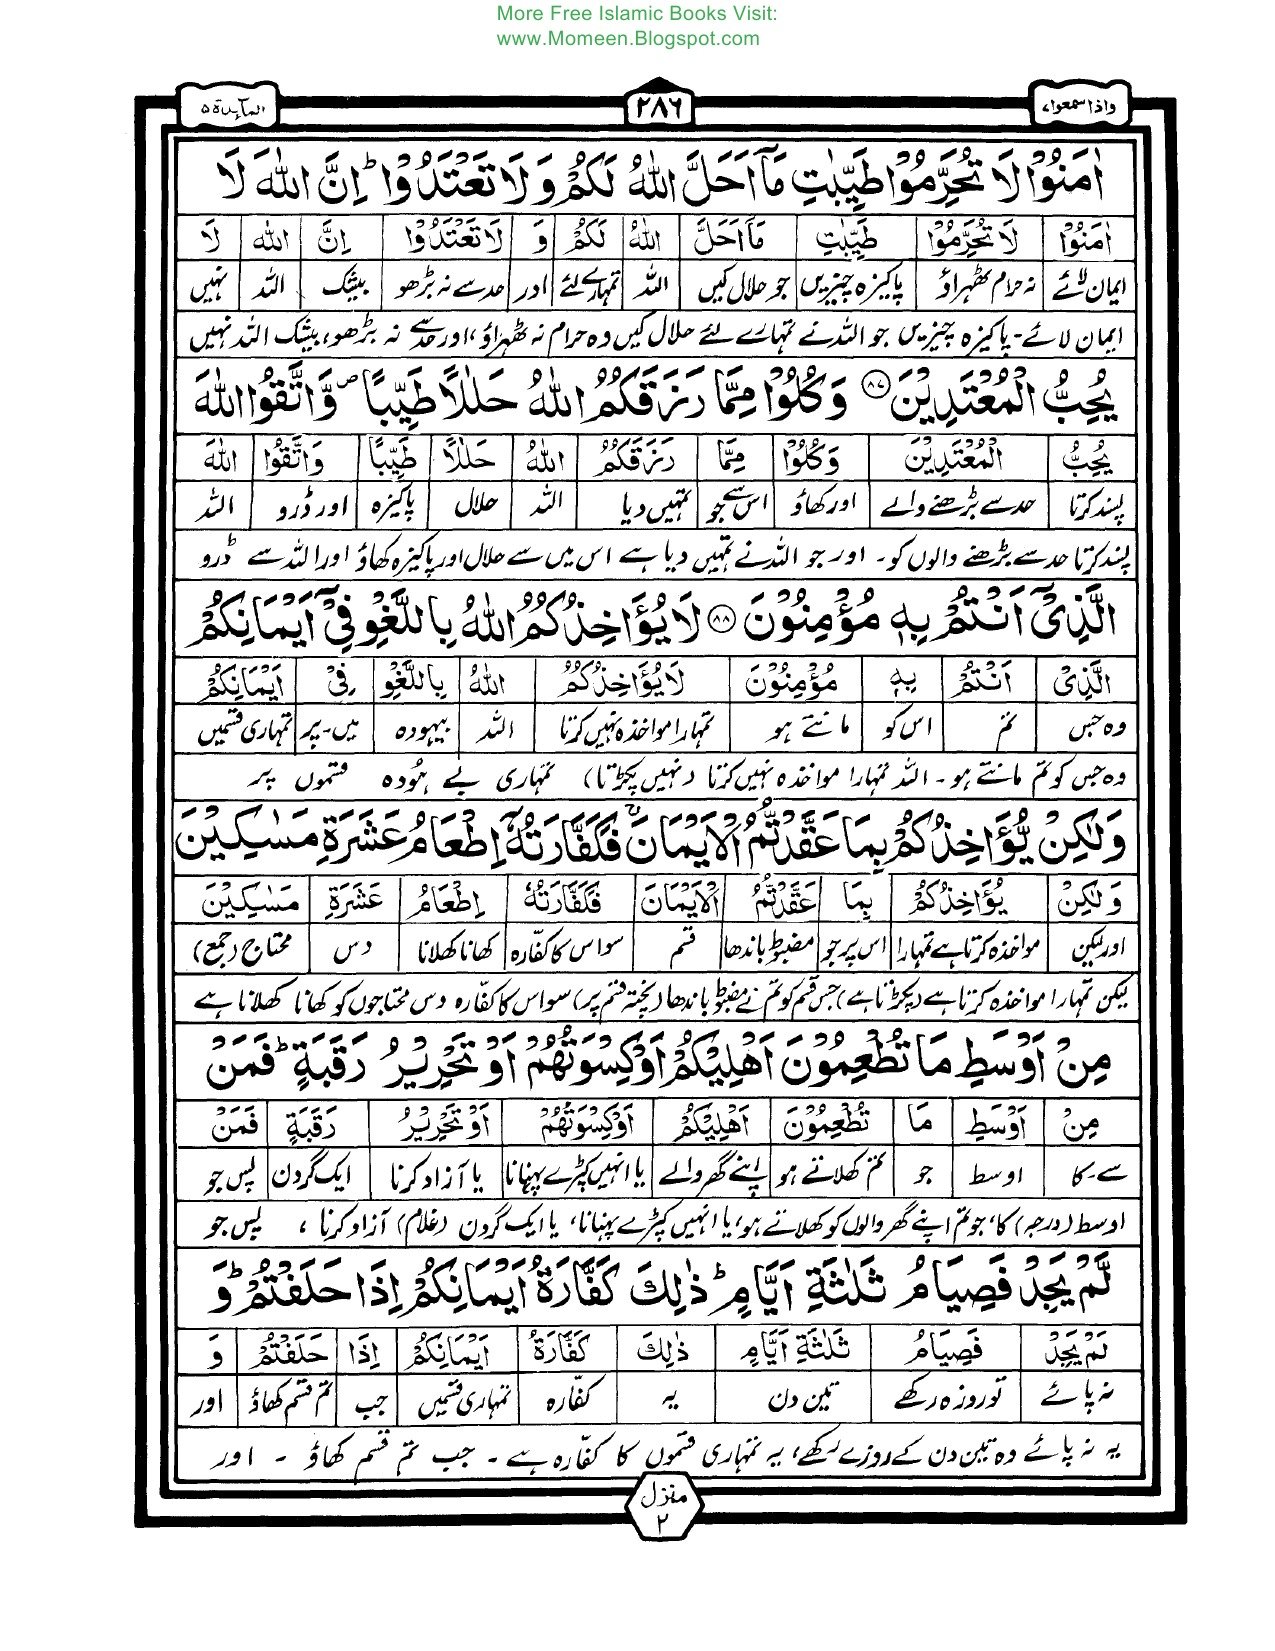 More Free Islamic Books Visit:
www.Momeen.Blogspot.com
واذا سمعوا٧ ٢٨٦ المآئدة ٥
اٰمَنُوْا لَا تُحَرِّمُوْا طَیِّبٰتِ مَاۤ اَحَلَّ اللّٰهُ لَكُمْ وَ لَا تَعْتَدُوْا ؕ اِنَّ اللّٰهَ لَا
اٰمَنُوْا لَا تُحَرِّمُوْا طَیِّبٰتِ مَاۤ اَحَلَّ اللّٰهُ لَكُمْ وَ لَا تَعْتَدُوْا اِنَّ اللّٰهَ لَا
ایمان لائے نہ حرام ٹھہراؤ پاکیزہ چیزیں جو حلال کیں اللہ تمہارے لئے اور حد سے نہ بڑھو بیشک اللہ نہیں
ایمان لائے۔ پاکیزہ چیزیں جو اللہ نے تمہارے لئے حلال کیں وہ حرام نہ ٹھہراؤ، اور حد سے نہ بڑھو، بیشک اللہ نہیں
یُحِبُّ الْمُعْتَدِیْنَ ۝۸۷ وَ كُلُوْا مِمَّا رَزَقَكُمُ اللّٰهُ حَلٰلًا طَیِّبًا ۪ وَّ اتَّقُوا اللّٰهَ
یُحِبُّ الْمُعْتَدِیْنَ وَكُلُوْا مِمَّا رَزَقَكُمُ اللّٰهُ حَلٰلًا طَیِّبًا وَاتَّقُوا اللّٰهَ
پسند کرتا حد سے بڑھنے والے اور کھاؤ اس سے جو تمہیں دیا اللہ حلال پاکیزہ اور ڈرو اللہ
پسند کرتا حد سے بڑھنے والوں کو۔ اور جو اللہ نے تمہیں دیا ہے اس میں سے حلال اور پاکیزہ کھاؤ اور اللہ سے ڈرو
الَّذِیْۤ اَنْتُمْ بِهٖ مُؤْمِنُوْنَ ۝۸۸ لَا یُؤَاخِذُكُمُ اللّٰهُ بِاللَّغْوِ فِیْۤ اَیْمَانِكُمْ
الَّذِیْ اَنْتُمْ بِهٖ مُؤْمِنُوْنَ لَا یُؤَاخِذُكُمُ اللّٰهُ بِاللَّغْوِ فِیْ اَیْمَانِكُمْ
وہ جس تم اس کو مانتے ہو تمہارا مواخذہ نہیں کرتا اللہ بیہودہ میں۔پر تمہاری قسمیں
وہ جس کو تم مانتے ہو۔ اللہ تمہارا مواخذہ نہیں کرتا (نہیں پکڑتا) تمہاری بے ہُودہ قسموں پر
وَ لٰكِنْ یُّؤَاخِذُكُمْ بِمَا عَقَّدْتُّمُ الْاَیْمَانَ ۚ فَكَفَّارَتُهٗۤ اِطْعَامُ عَشَرَةِ مَسٰكِیْنَ
وَ لٰكِنْ یُؤَاخِذُكُمْ بِمَا عَقَّدْتُّمُ الْاَیْمَانَ فَكَفَّارَتُهٗ اِطْعَامُ عَشَرَةِ مَسٰكِیْنَ
اور لیکن مواخذہ کرتا ہے تمہارا اس پر جو مضبوط باندھا قسم سو اس کا کفّارہ کھانا کھلانا دس محتاج (جمع)
لیکن تمہارا مواخذہ کرتا ہے (پکڑتا ہے) جس قسم کو تم نے مضبوط باندھا (پختہ قسم پر) سو اس کا کفّارہ دس محتاجوں کو کھانا کھلانا ہے
مِنْ اَوْسَطِ مَا تُطْعِمُوْنَ اَهْلِیْكُمْ اَوْ كِسْوَتُهُمْ اَوْ تَحْرِیْرُ رَقَبَةٍ ؕ فَمَنْ
مِنْ اَوْسَطِ مَا تُطْعِمُوْنَ اَهْلِیْكُمْ اَوْ كِسْوَتُهُمْ اَوْ تَحْرِیْرُ رَقَبَةٍ فَمَنْ
سے۔کا اوسط جو تم کھلاتے ہو اپنے گھر والے یا انہیں کپڑے پہنانا یا آزاد کرنا ایک گردن پس جو
اوسط (درجہ) کا، جو تم اپنے گھر والوں کو کھلاتے ہو، یا انہیں کپڑے پہنانا، یا ایک گردن (غلام) آزاد کرنا، پس جو
لَّمْ یَجِدْ فَصِیَامُ ثَلٰثَةِ اَیَّامٍ ؕ ذٰلِكَ كَفَّارَةُ اَیْمَانِكُمْ اِذَا حَلَفْتُمْ ؕ وَ
لَمْ یَجِدْ فَصِیَامُ ثَلٰثَةِ اَیَّامٍ ذٰلِكَ كَفَّارَةُ اَیْمَانِكُمْ اِذَا حَلَفْتُمْ وَ
نہ پائے تو روزہ رکھے تین دن یہ کفّارہ تمہاری قسمیں جب تم قسم کھاؤ اور
یہ نہ پائے وہ تین دن کے روزے رکھے، یہ تمہاری قسموں کا کفّارہ ہے۔ جب تم قسم کھاؤ ۔ اور
منزل
٢